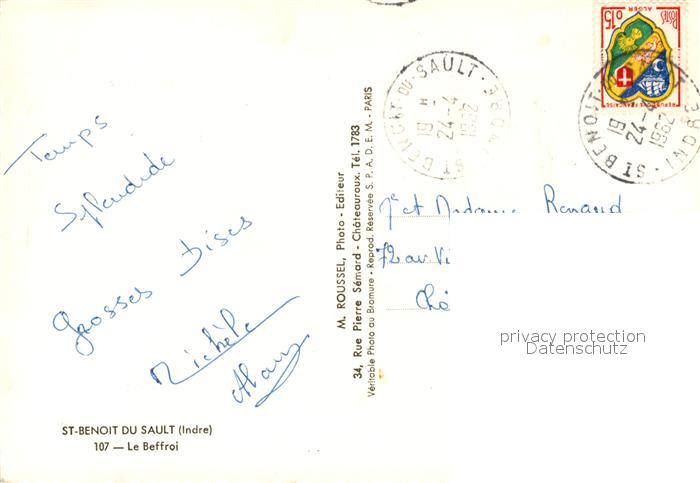 Temps
Splendide
Grosses Bises
Michèle
Alain
ST-BENOIT DU SAULT (Indre)
107 — Le Beffroi
M. ROUSSEL, Photo - Editeur
34, Rue Pierre Sémard - Châteauroux. Tél. 1783
Véritable Photo au Bromure - Reprod. Réservée S. P. A. D. E. M. - PARIS
ST BENOIT-DU-SAULT · INDRE
19 H
24-4
1962
0,15
Postes
ALGER
REPUBLIQUE FRANCAISE
ST BENOIT-DU INDRE
19
24-4
1962
et Madame Renaud
72 av Vi
Châ
privacy protection
Datenschutz